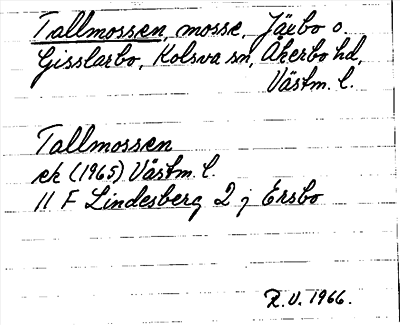 Tallmossen, mosse, Jäxbo o.
Gisslarbo, Kolsva sn, Åkerbo hd,
Västm. l.
Tallmossen
ek (1965) Västm. l.
11 F Lindesberg 2 j Ersbo
R.V. 1966.